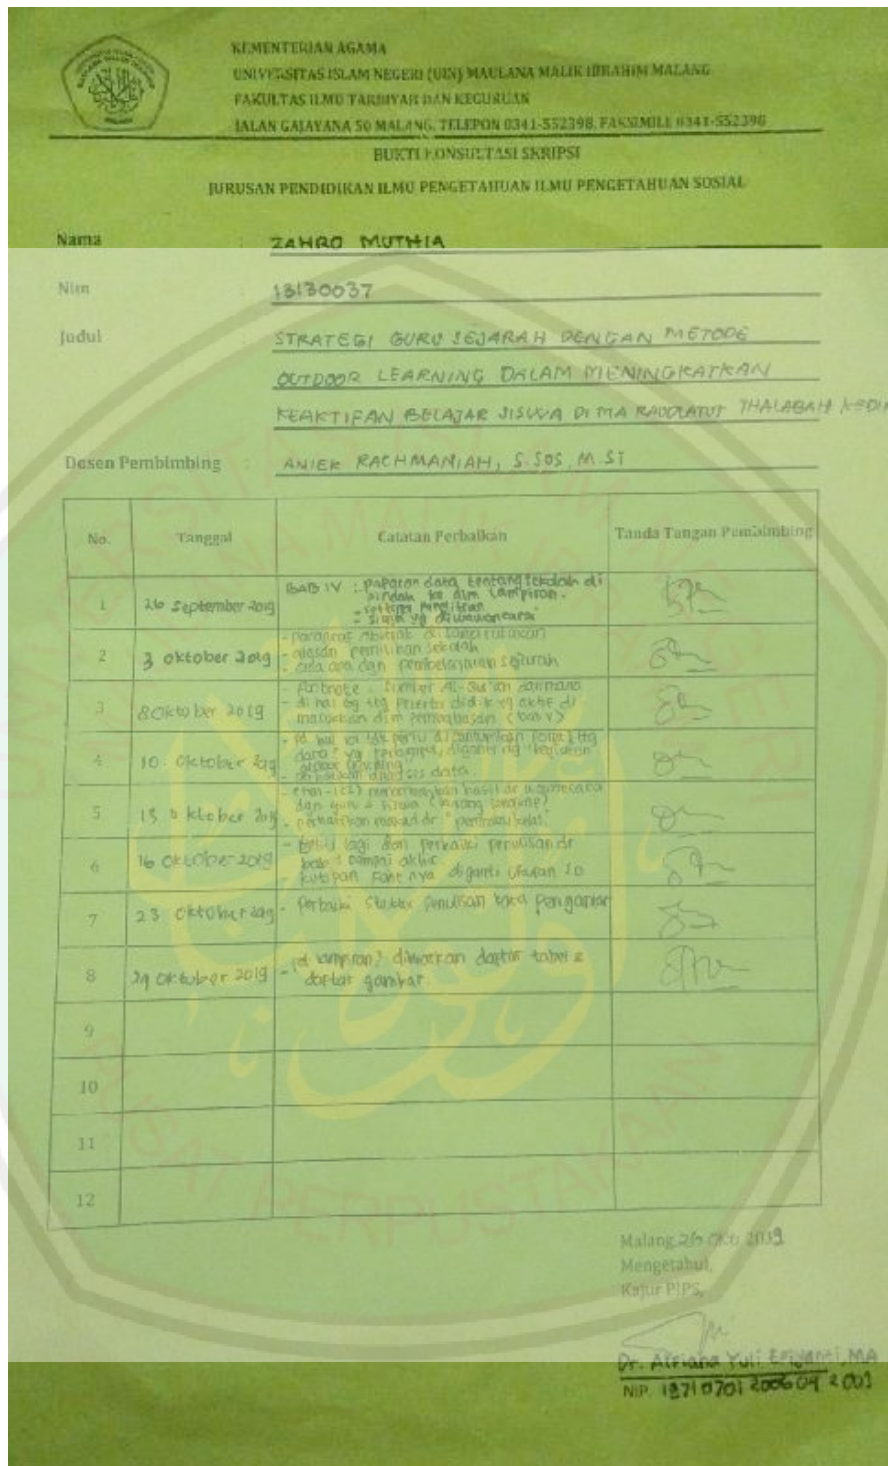 KEMENTERIAN AGAMA
UNIVERSITAS ISLAM NEGERI (UIN) MAULANA MALIK IBRAHIM MALANG
FAKULTAS ILMU TARBIYAH DAN KEGURUAN
JALAN GAJAYANA 50 MALANG, TELEPON 0341-552398, FAKSIMILI 0341-552398
BUKTI KONSULTASI SKRIPSI
JURUSAN PENDIDIKAN ILMU PENGETAHUAN ILMU PENGETAHUAN SOSIAL
Nama : ZAHRO MUTHIA
Nim : 13130037
Judul STRATEGI GURU SEJARAH DENGAN METODE
OUTDOOR LEARNING DALAM MENINGKATKAN
KEAKTIFAN BELAJAR SISWA DI MA RAUDLATUT THALABAH
Dosen Pembimbing : ANIEK RACHMANIAH, S.SOS, M.SI
No. Tanggal Catatan Perbaikan Tanda Tangan Pembimbing
1 26 September 2019 BAB IV : paparan data tentang sekolah di
pindah ke dlm lampiran.
- siswa yg diwawancarai
2 3 oktober 2019 - paragraf Abstrak
- alasan pemilihan sekolah
- ada apa dgn pembelajaran sejarah
3 8 Oktober 2019 - Footnote : sumber Al-Qur'an darimana
peserta didik yg aktif di
masukkan dlm pembahasan (bab V)
4 10 Oktober 2019
- perbaikan analisis data
5 15 oktober 2019
dan guru & siswa (kurang lengkap)
- perhatikan maksud dr "
6 16 Oktober 2019 - teliti lagi dan perbaiki penulisan dr
bab 1 sampai akhir
kutipan Font nya diganti ukuran 10
7 23 Oktober 2019 - Perbaiki penulisan kata pengantar
8 29 Oktober 2019 - pd lampiran2 daftar tabel &
daftar gambar.
9
10
11
12
Malang, 2019
Mengetahui,
Kajur PIPS,
Dr. Alfiana Yuli Efiyanti, MA
NIP. 19710701 200604 2 001
PUSAT PERPUSTAKAAN